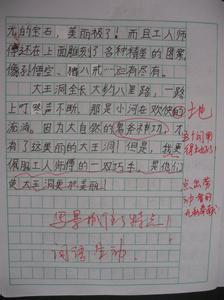 的宝石，美丽极了！而且工人师
傅还在上面雕刻了各种精美的图案，
像孙悟空、猪八戒
大王洞全长大约八里路，一路
上叮咚声不断，那是小河在欢快的
流淌。因为大自然的鬼斧神功，才
有了这美丽的大王洞！但是，我更
佩服工人师傅的一双巧手，是他们
使大王洞更加美丽！
写景抓住了特点！
词语生动。